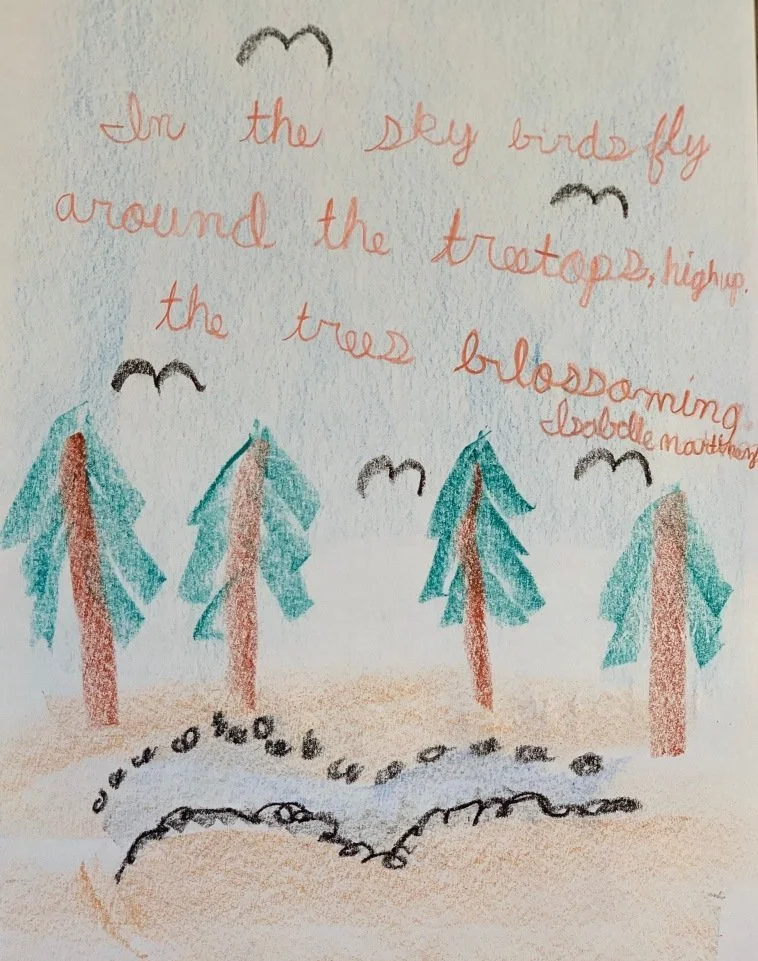 In the sky birds fly
around the treetops, high up.
the trees brlossoming
Isabelle martinez